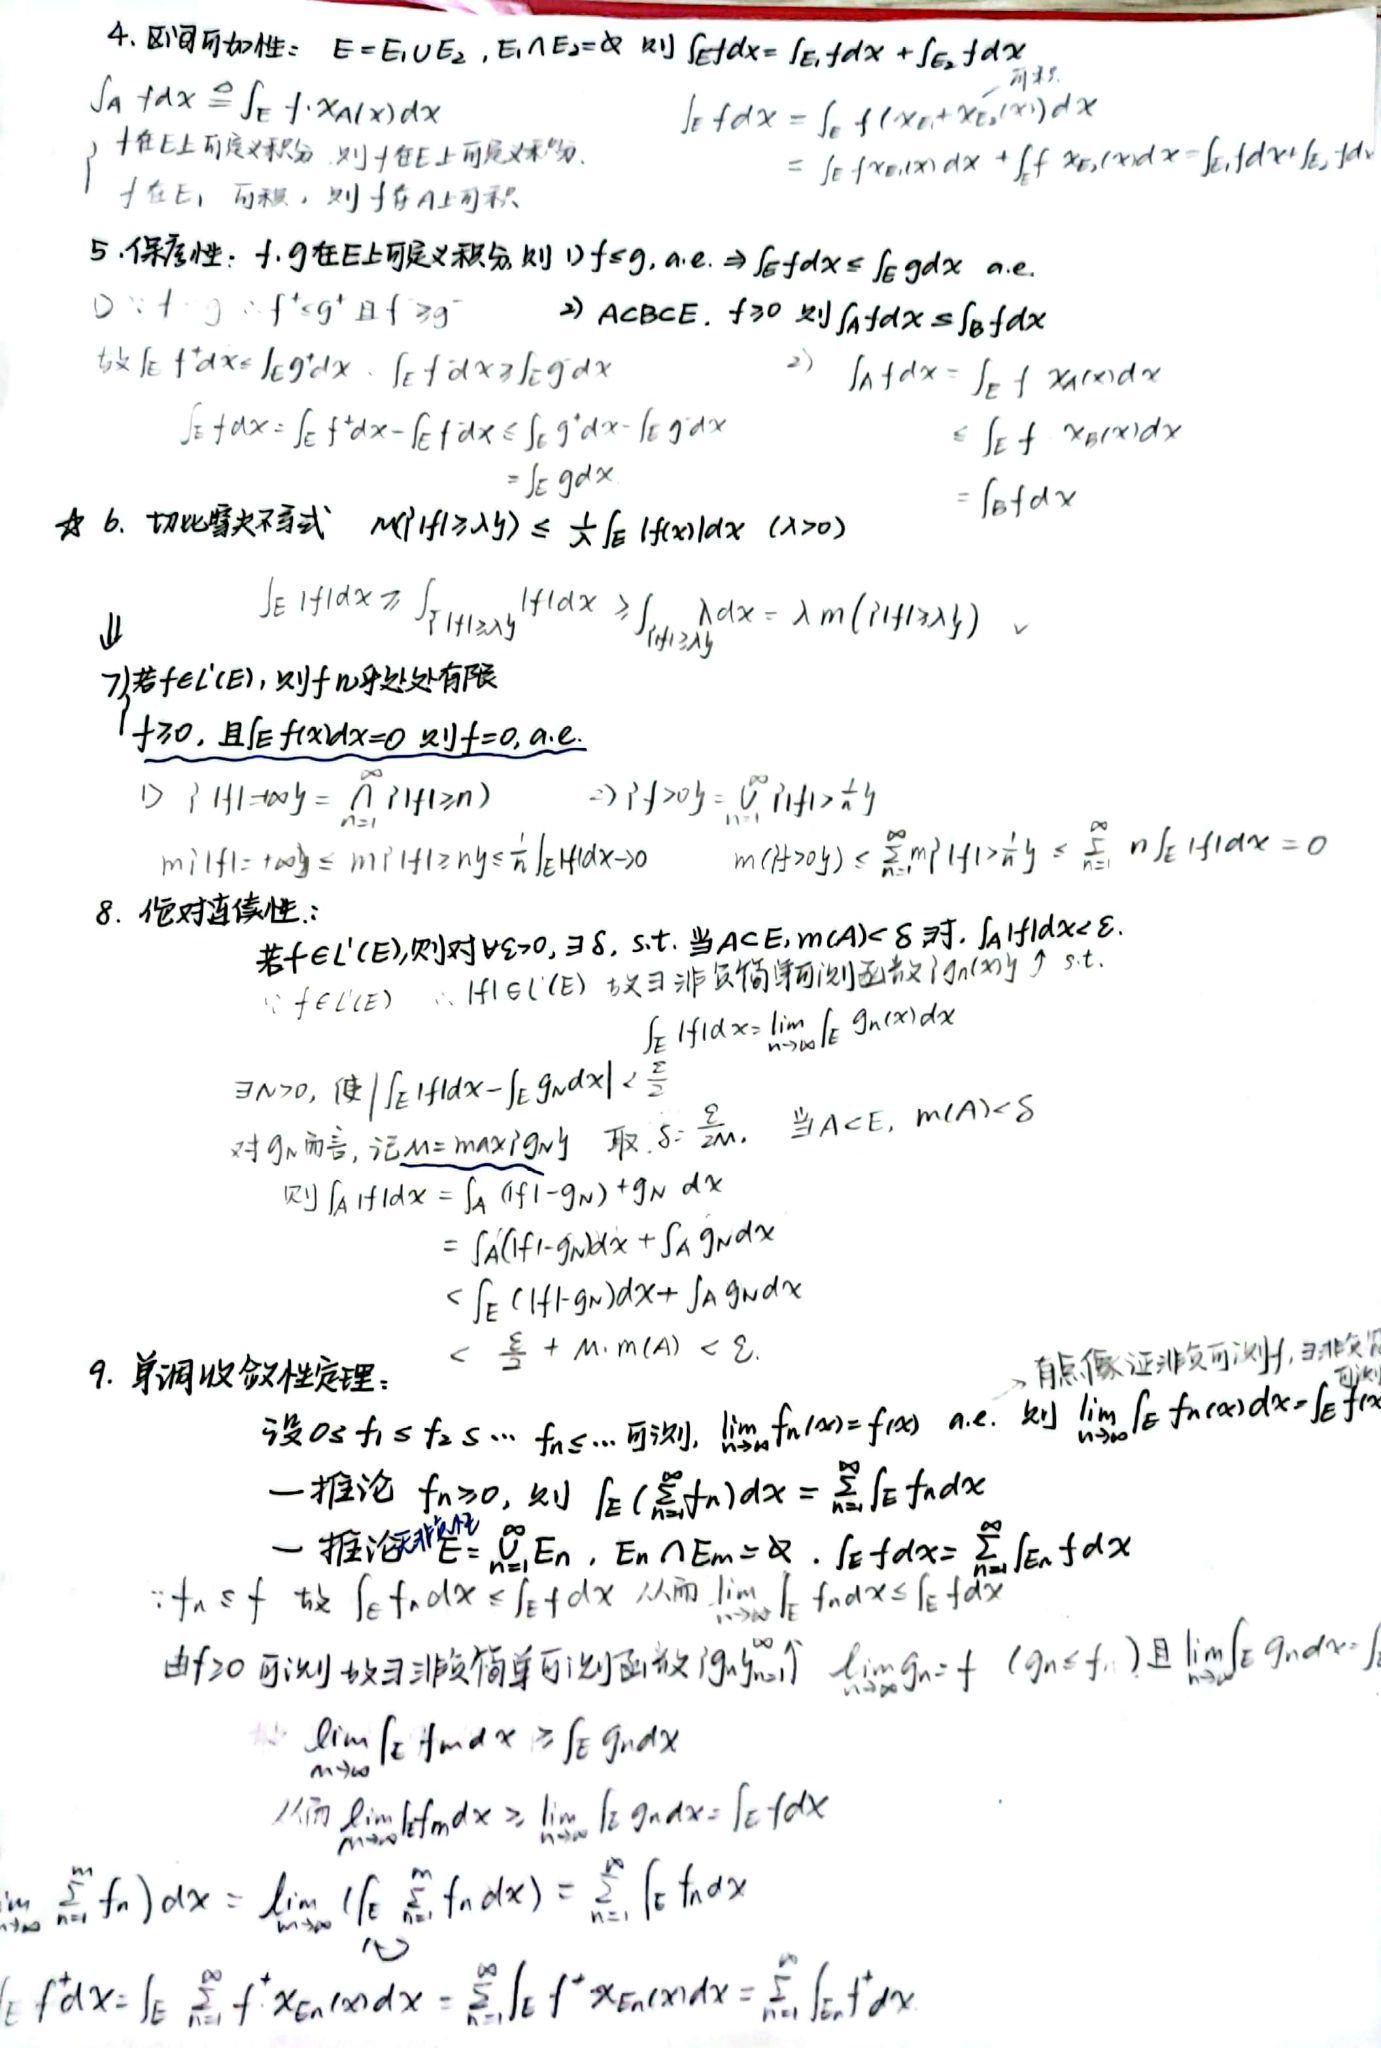 4. 区间可加性： E=E₁∪E₂, E₁∩E₂=∅ 则 ∫_E fdx = ∫_{E₁} fdx + ∫_{E₂} fdx
可积
∫_A fdx ≜ ∫_E f·χ_A(x)dx
∫_E fdx = ∫_E f(χ_{E₁}+χ_{E₂}(x))dx
f在E上可定义积分 则f在E上可定义积分.
= ∫_E fχ_{E₁}(x)dx + ∫_E f χ_{E₂}(x)dx = ∫_{E₁} fdx + ∫_{E₂} fdx
f在E, 可积, 则f在A上可积
5. 保序性: f.g在E上可定义积分, 则 1) f≤g, a.e. ⇒ ∫_E fdx ≤ ∫_E gdx a.e.
1) ∵ f g ∴ f⁺≤g⁺ 且 f⁻≥g⁻
2) A⊂B⊂E. f≥0 则 ∫_A fdx ≤ ∫_B fdx
故 ∫_E f⁺dx ≤ ∫_E g⁺dx . ∫_E f⁻dx ≥ ∫_E g⁻dx
2) ∫_A fdx = ∫_E f χ_A(x)dx
∫_E fdx = ∫_E f⁺dx - ∫_E f⁻dx ≤ ∫_E g⁺dx - ∫_E g⁻dx
≤ ∫_E f χ_B(x)dx
= ∫_E gdx
= ∫_B fdx
☆ 6. 切比雪夫不等式 m({|f|≥λ}) ≤ 1/λ ∫_E |f(x)|dx (λ>0)
∫_E |f|dx ≥ ∫_{{|f|≥λ}} |f|dx ≥ ∫_{{|f|≥λ}} λdx = λm({|f|≥λ}) ✓
⇓
7) 若f∈L'(E), 则f几乎处处有限
f≥0, 且∫_E f(x)dx=0 则f=0, a.e.
1) {|f|=+∞} = ⋂_{n=1}^∞ {|f|≥n)
2) {f>0} = ⋃_{n=1}^∞ {|f|>1/n}
m{|f|=+∞} ≤ m{|f|≥n} ≤ 1/n ∫_E |f|dx→0
m({f>0}) ≤ Σ_{n=1}^∞ m{|f|>1/n} ≤ Σ_{n=1}^∞ n∫_E |f|dx = 0
8. 绝对连续性.:
若f∈L'(E), 则对∀ε>0, ∃δ, s.t. 当A⊂E, m(A)<δ时. ∫_A |f|dx<ε.
∵ f∈L'(E) ∴ |f|∈L'(E) 故∃非负简单可测函数{gₙ(x)}↑ s.t.
∫_E |f|dx = lim_{n→∞} ∫_E gₙ(x)dx
∃N>0, 使 |∫_E |f|dx - ∫_E g_N dx| < ε/2
对g_N而言, 记M=max{g_N} 取 δ= ε/2M. 当A⊂E, m(A)<δ
则 ∫_A |f|dx = ∫_A (|f|-g_N)+g_N dx
= ∫_A(|f|-g_N)dx + ∫_A g_N dx
< ∫_E (|f|-g_N)dx + ∫_A g_N dx
< ε/2 + M·m(A) < ε.
9. 单调收敛性定理:
→ 有点像证非负可测f, ∃非负简 可测
设0≤f₁≤f₂≤⋯ fₙ≤⋯可测, lim_{n→∞} fₙ(x)=f(x) a.e. 则 lim_{n→∞} ∫_E fₙ(x)dx=∫_E f(x
一推论 fₙ≥0, 则 ∫_E (Σ_{n=1}^∞ fₙ)dx = Σ_{n=1}^∞ ∫_E fₙdx
一推论 无非负性 E=⋃_{n=1}^∞ Eₙ, Eₙ∩Eₘ=∅. ∫_E fdx = Σ_{n=1}^∞ ∫_{Eₙ} fdx
∵ fₙ≤f 故 ∫_E fₙdx ≤ ∫_E fdx 从而 lim_{n→∞} ∫_E fₙdx ≤ ∫_E fdx
由f≥0 可测 故∃非负简单可测函数{gₙ}_{n=1}^∞↑ lim_{n→∞} gₙ=f (gₙ≤fₙ) 且 lim_{n→∞} ∫_E gₙdx=∫_E
lim_{m→∞} ∫_E fₘdx ≥ ∫_E gₙdx
从而 lim_{m→∞} ∫_E fₘdx ≥ lim_{n→∞} ∫_E gₙdx = ∫_E fdx
im_{m→∞} Σ_{n=1}^m fₙ)dx = lim_{m→∞} (∫_E Σ_{n=1}^m fₙdx) = Σ_{n=1}^∞ ∫_E fₙdx
∫_E f⁺dx = ∫_E Σ_{n=1}^∞ f⁺·χ_{Eₙ}(x)dx = Σ_{n=1}^∞ ∫_E f⁺·χ_{Eₙ}(x)dx = Σ_{n=1}^∞ ∫_{Eₙ} f⁺dx.